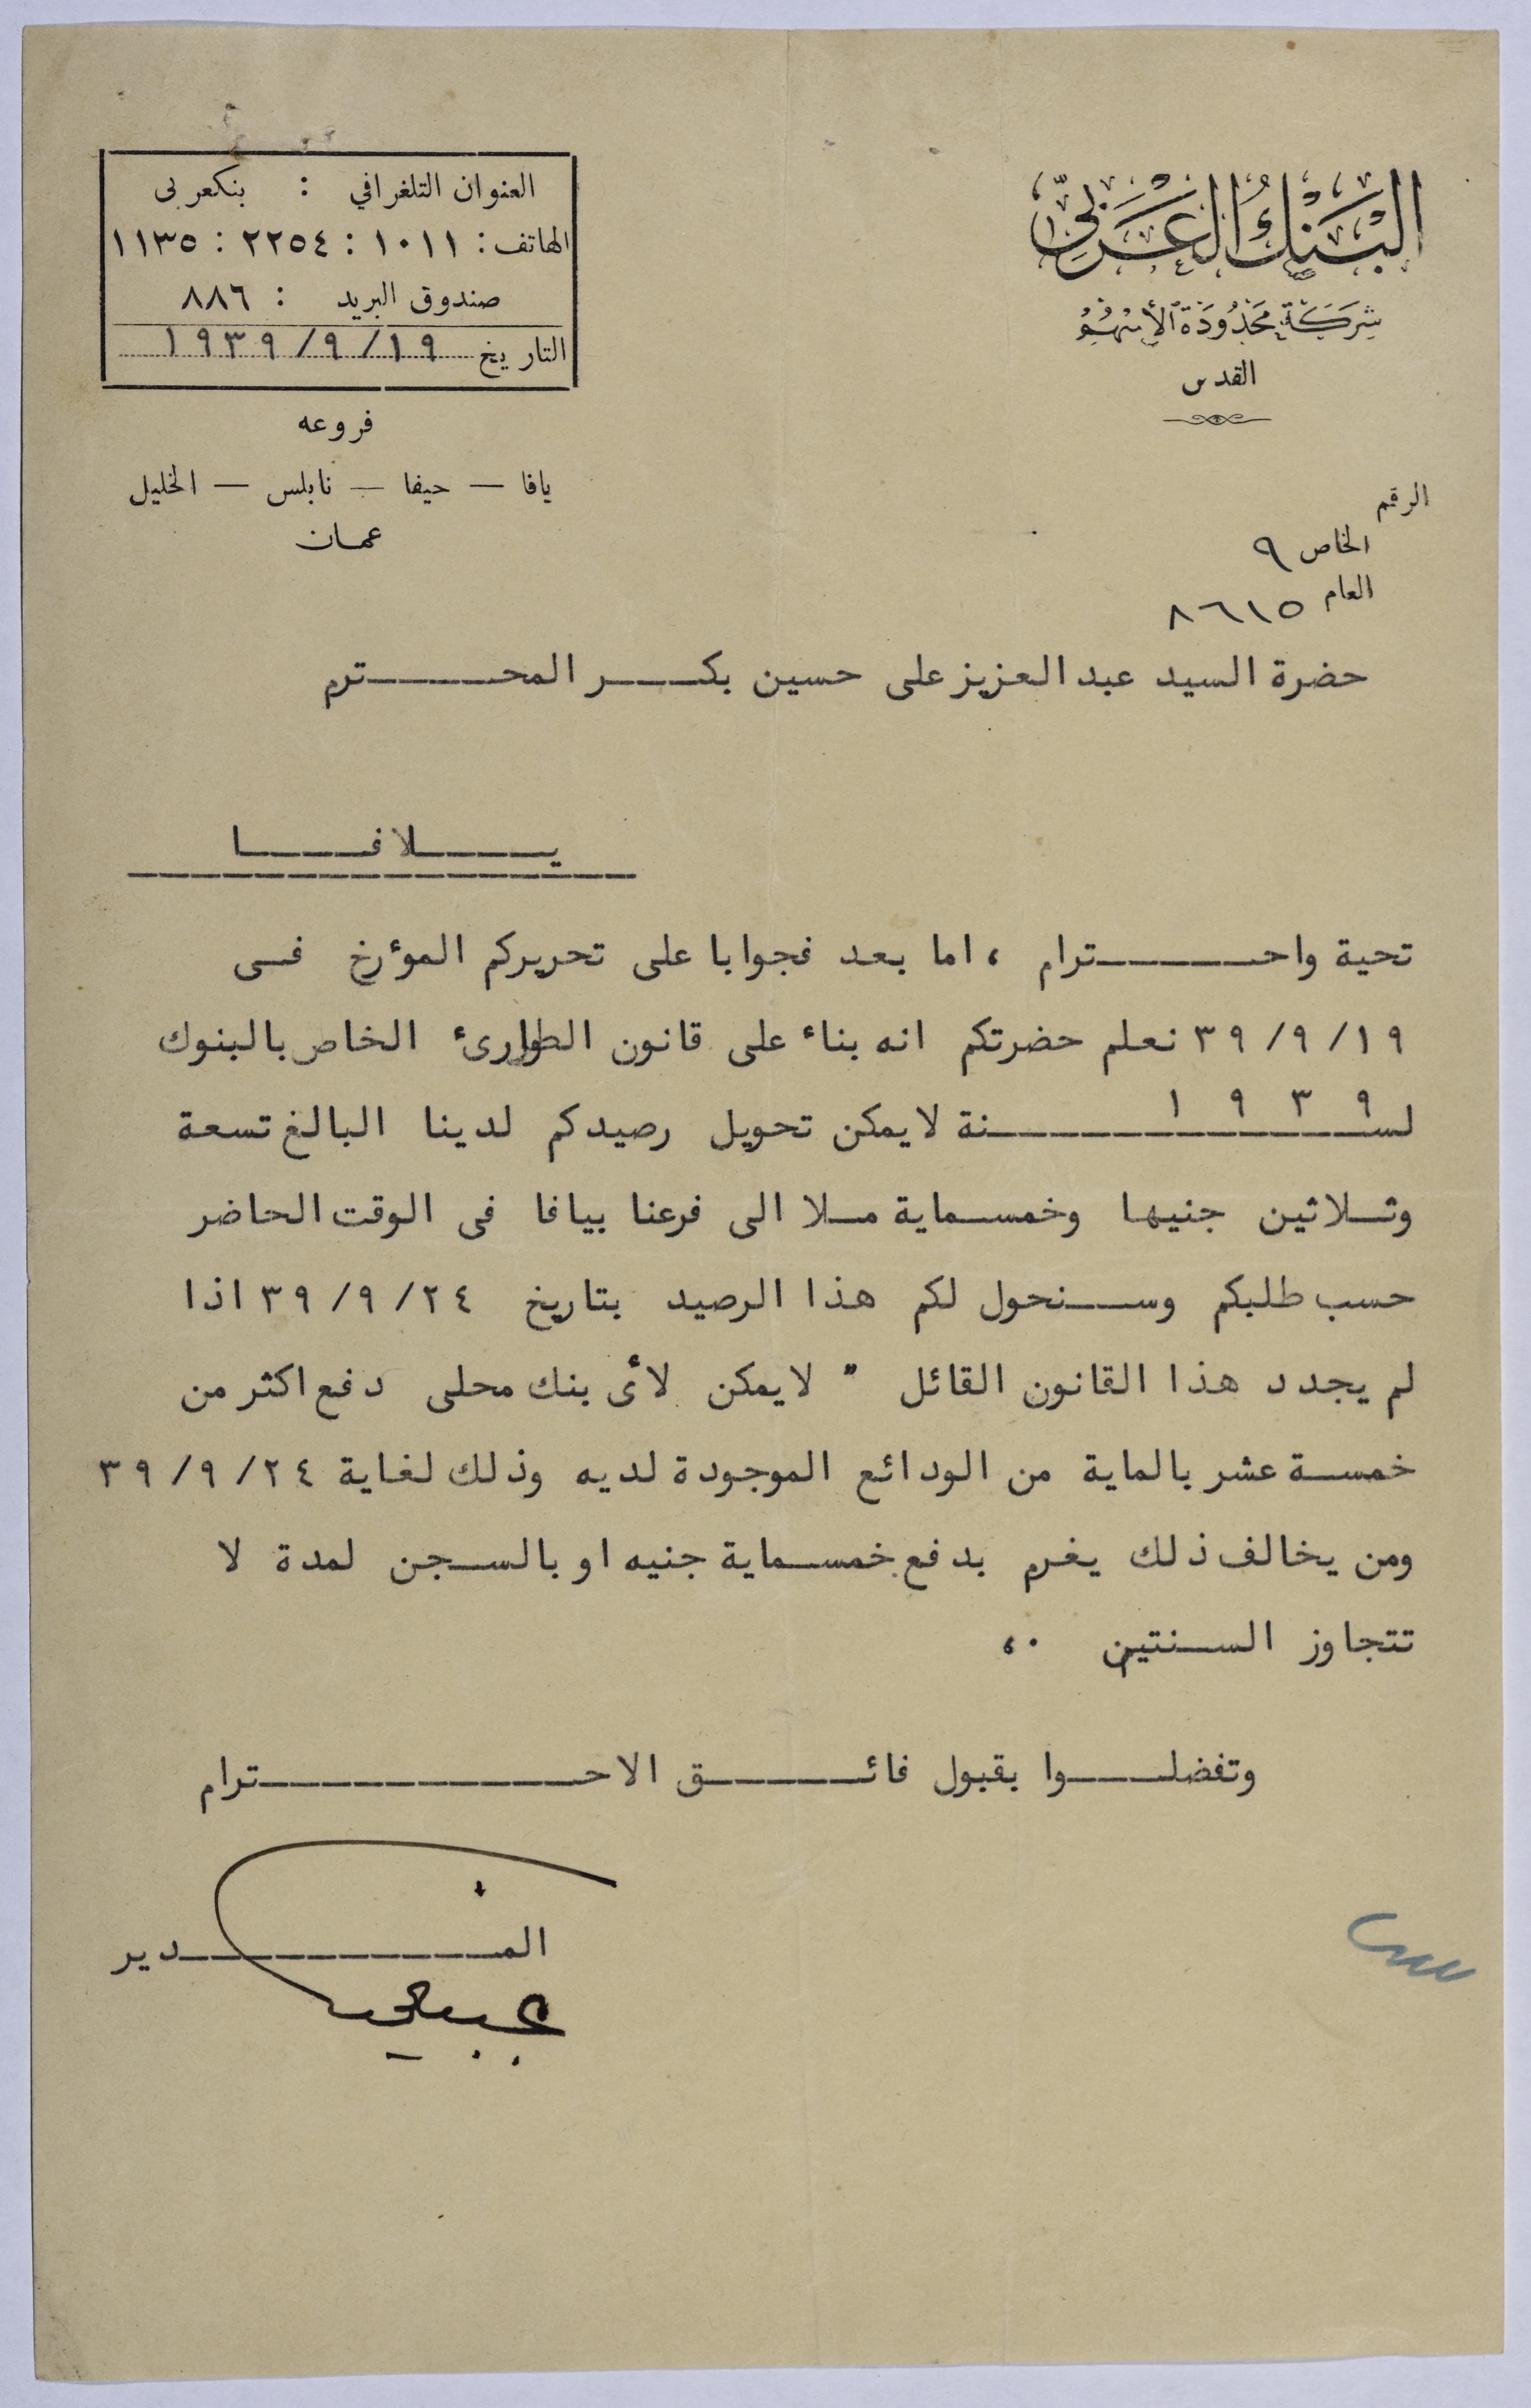 البَنْكُ العَرَبِيّ
شِرِكَة مَحْدُودَة الأسْهُمْ
القدس
العنوان التلغرافي : بنكعربى
الهاتف : ١٠١١ : ٢٢٥٤ : ١١٣٥
صندوق البريد : ٨٨٦
التاريخ ١٩٣٩/٩/١٩
فروعه
يافا — حيفا — نابلس — الخليل
عمان
الرقم
الخاص ٩
العام ٨٦١٥
حضرة السيد عبد العزيز على حسين بكـــر المحـــترم
يـــلافـــا
تحية واحـــترام ، اما بعد فجوابا على تحريركم المؤرخ فى
٣٩/٩/١٩ نعلم حضرتكم انه بناء على قانون الطوارىء الخاص بالبنوك
لســـنة ١٩٣٩ لا يمكن تحويل رصيدكم لدينا البالغ تسعة
وثـلاثين جنيها وخمسـماية مـلا الى فرعنا بيافا فى الوقت الحاضر
حسب طلبكم وسـنحول لكم هذا الرصيد بتاريخ ٣٩/٩/٢٤ اذا
لم يجدد هذا القانون القائل " لا يمكن لأى بنك محلى دفع اكثر من
خمسـة عشر بالماية من الودائع الموجودة لديه وذلك لغاية ٣٩/٩/٢٤
ومن يخالف ذلك يغرم بدفع خمسـماية جنيه او بالسـجن لمدة لا
تتجاوز السـنتين ،٠
وتفضلـــوا بقبول فائـــق الاحـــترام
المـــدير